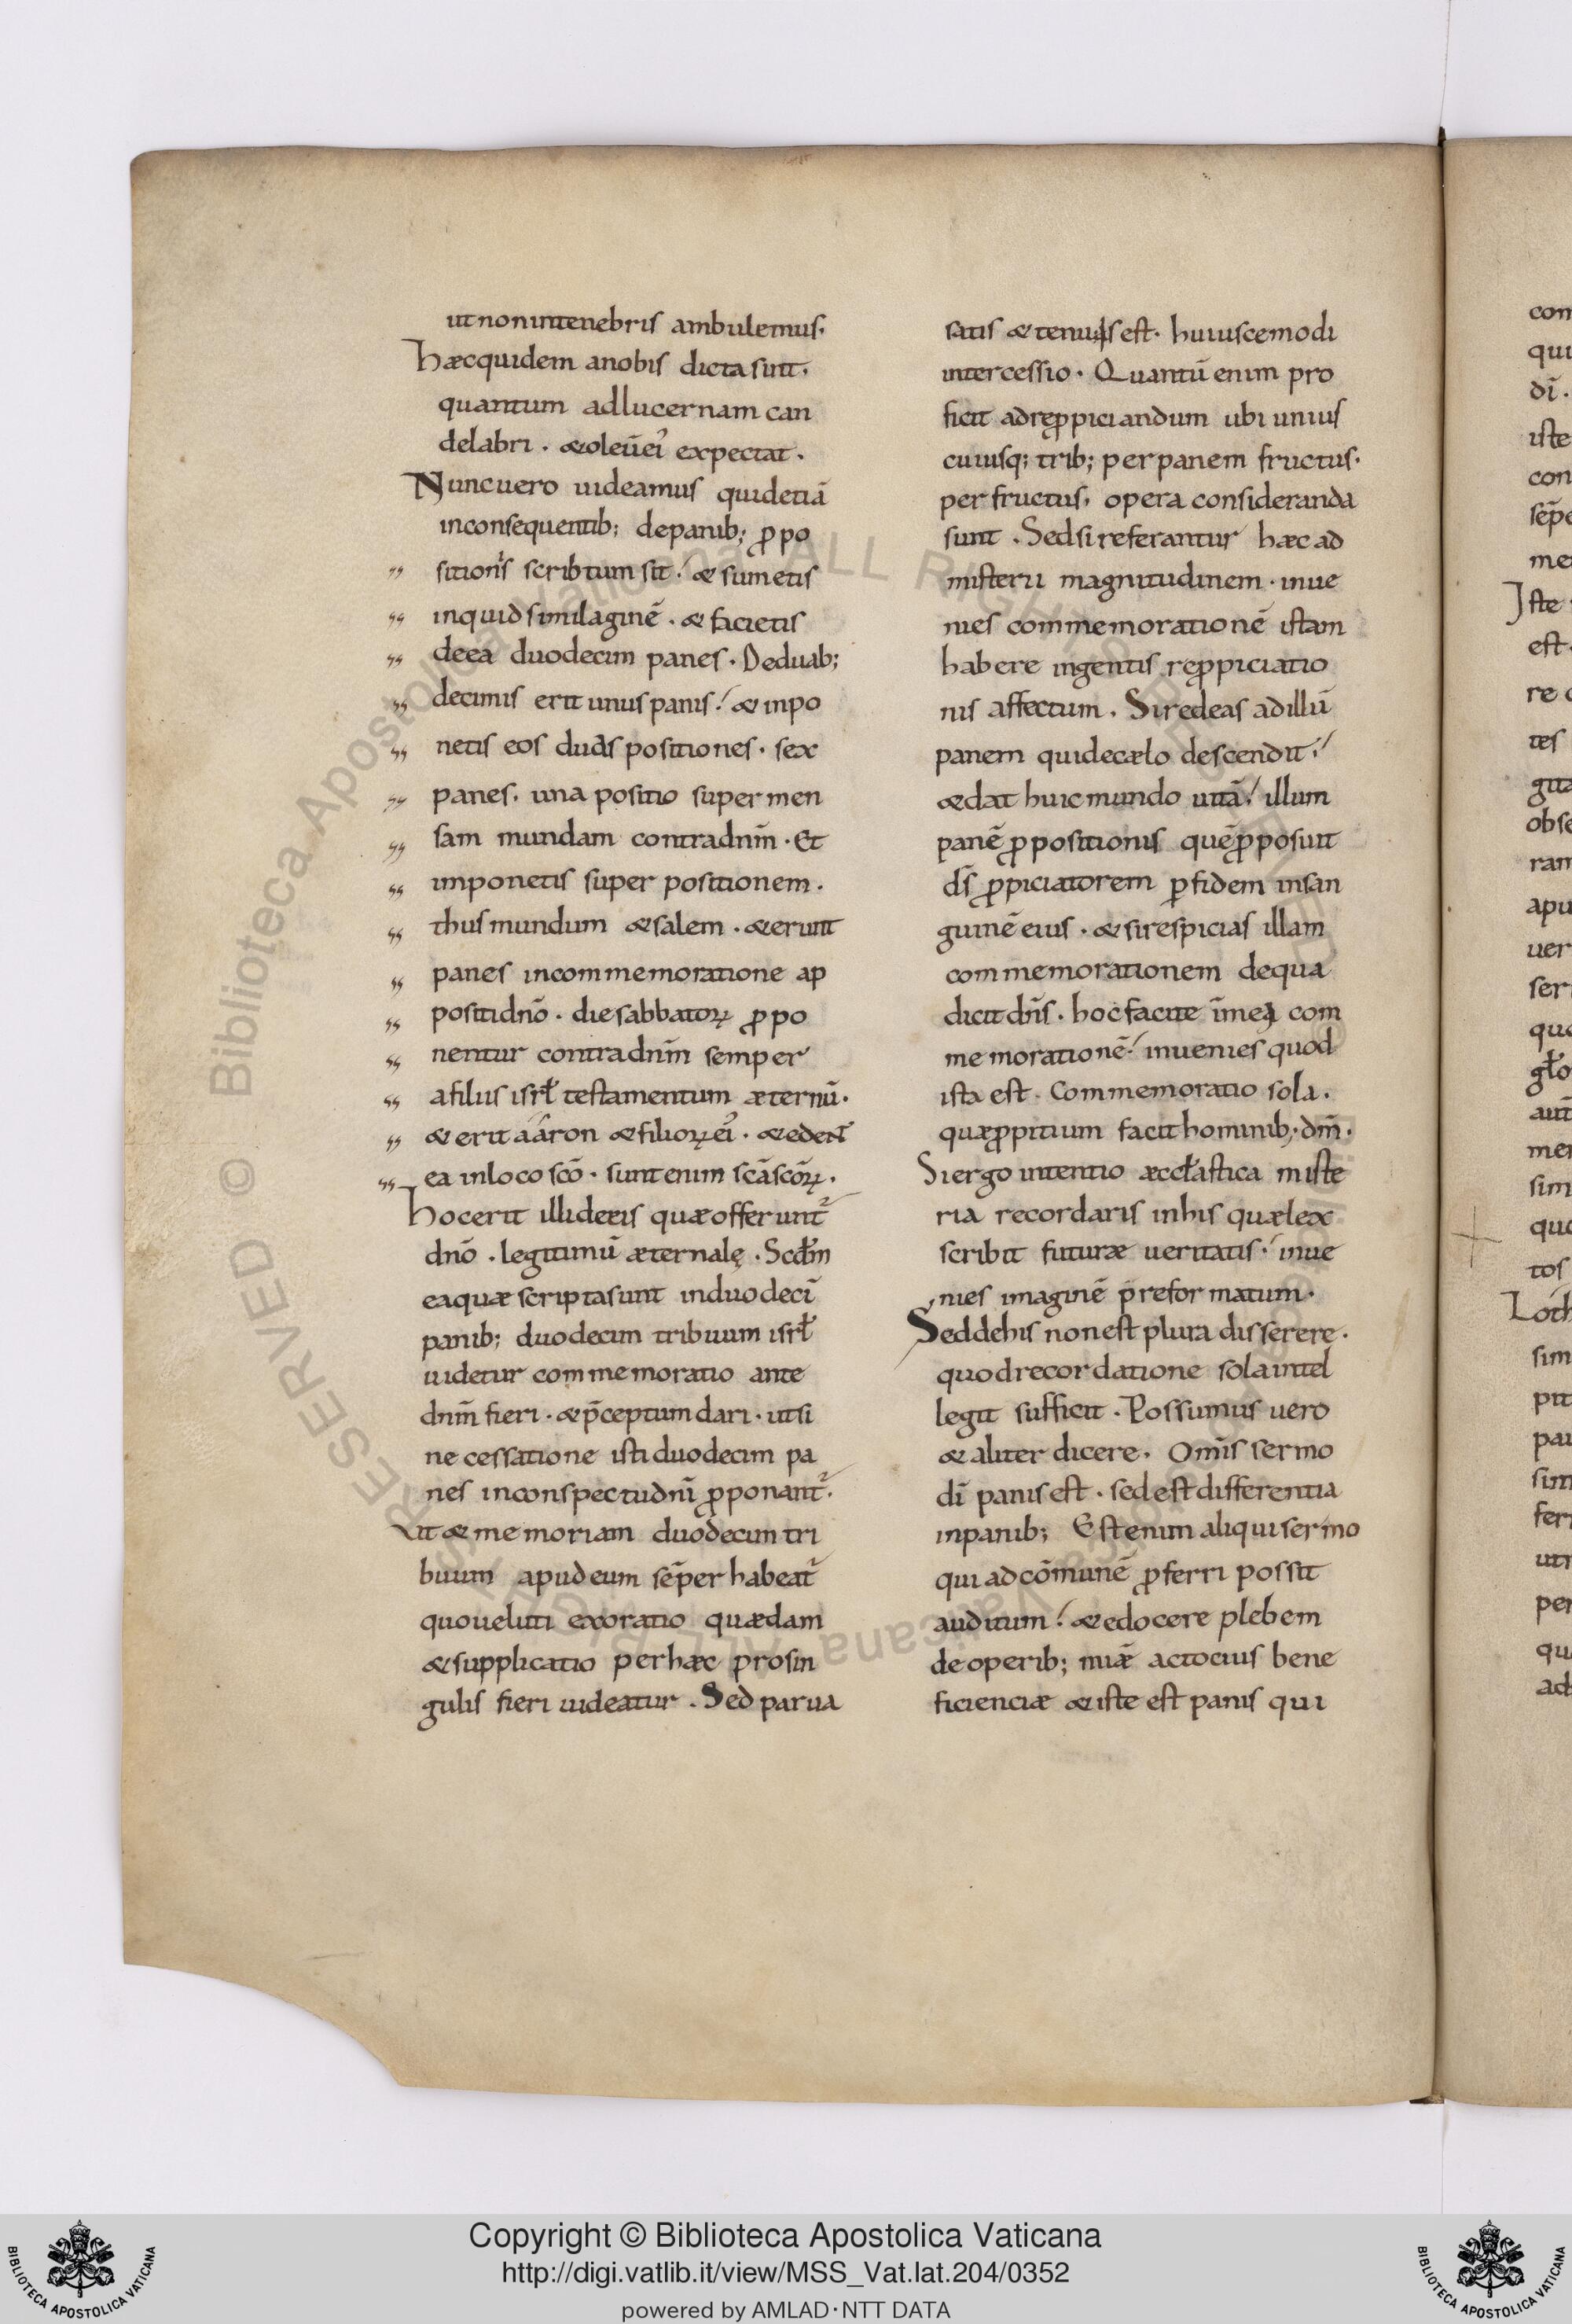 ut nonintenebris ambulemus.
Hæcquidem anobis dicta sunt.
quantum adlucernam can
delabri . &oleū ei' expectat .
Nuncuero uideamus quidetiā
inconsequentib; depanib; ꝓpo
sitionis scribtum sit. & sumetis
inquid similaginē . & facietis
deea duodecim panes . Deduab;
decimis erit unus panis. & inpo
netis eos duas positiones . sex
panes. una positio super men
sam mundam contradn̄m . Et
imponetis super positionem .
thus mundum & salem . & erunt
panes incommemoratione ap
positi dn̄o . die sabbatoꝝ ꝓpo
nentur contradn̄m semper
afiliis isrł testamentum æternū .
& erit aaron & filioꝝ ei' . & edent
ea inloco scō . sunt enim scā scōꝝ .
Hocerit illi dexis quæ offerunt̄
dn̄o . legitimū æternalę . Scd̄m
eaquæ scripta sunt induodecī
panib; duodecim tribuum isrł
uidetur commemoratio ante
dn̄m fieri . & p̄ceptum dari . utsi
ne cessatione isti duodecim pa
nes inconspectu dn̄i ꝓponant̄ .
Ut & memoriam duodecim tri
buum apud eum sēper habeat̄
quoueluti exoratio quædam
& supplicatio per hæc pro sin
gulis fieri uideatur . Sed parua
satis & tenuis est . huiuscemodi
intercessio . Quantū enim pro
ficit adreꝓpiciandum ubi unius
cuiusq; trib; per panem fructus .
per fructus. opera consideranda
sunt . Sed si referantur hæc ad
misterii magnitudinem . inue
nies commemorationē istam
habere ingentis reꝓpiciatio
nis affectum . Si redeas ad illū
panem qui de cælo descendit.
& dat huic mundo uitā. illum
panē ꝓpositionis quē ꝓposuit
ds̄ ꝓpiciatorem ꝑ fidem in san
guinē eius . & si respicias illam
commemorationem de qua
dicit dn̄s . hoc facite īmea com
memorationē. inuenies quod
ista est . Commemoratio sola .
quæ ꝓpitium facit hominib; dm̄ .
Si ergo intentio æccłastica miste
ria recordaris in his quæ lex
scribit futuræ ueritatis . inue
nies imaginē p̄reformatum .
Sed dehis non est plura disserere .
quod recordatione sola intel
legit sufficit . Possumus uero
& aliter dicere . Omīs sermo
dī panis est . sed est differentia
in panib; Est enim aliqui sermo
qui ad cōmunē ꝓferri possit
auditum . & edocere plebem
de operib; miǣ ac tocius bene
ficienciæ & iste est panis qui
con
qui
dī .
iste
con
sēpe
me
Iste
est .
re
tes
gita
obse
ram
apu
uer
ser
quo
gło
aut
men
sim
quo
tos
Loth
sim
pit
pan
sim
fer
utr
per
qu
ad
Copyright © Biblioteca Apostolica Vaticana
http://digi.vatlib.it/view/MSS_Vat.lat.204/0352
powered by AMLAD·NTT DATA
BIBLIOTECA APOSTOLICA VATICANA
BIBLIOTECA APOSTOLICA VATICANA